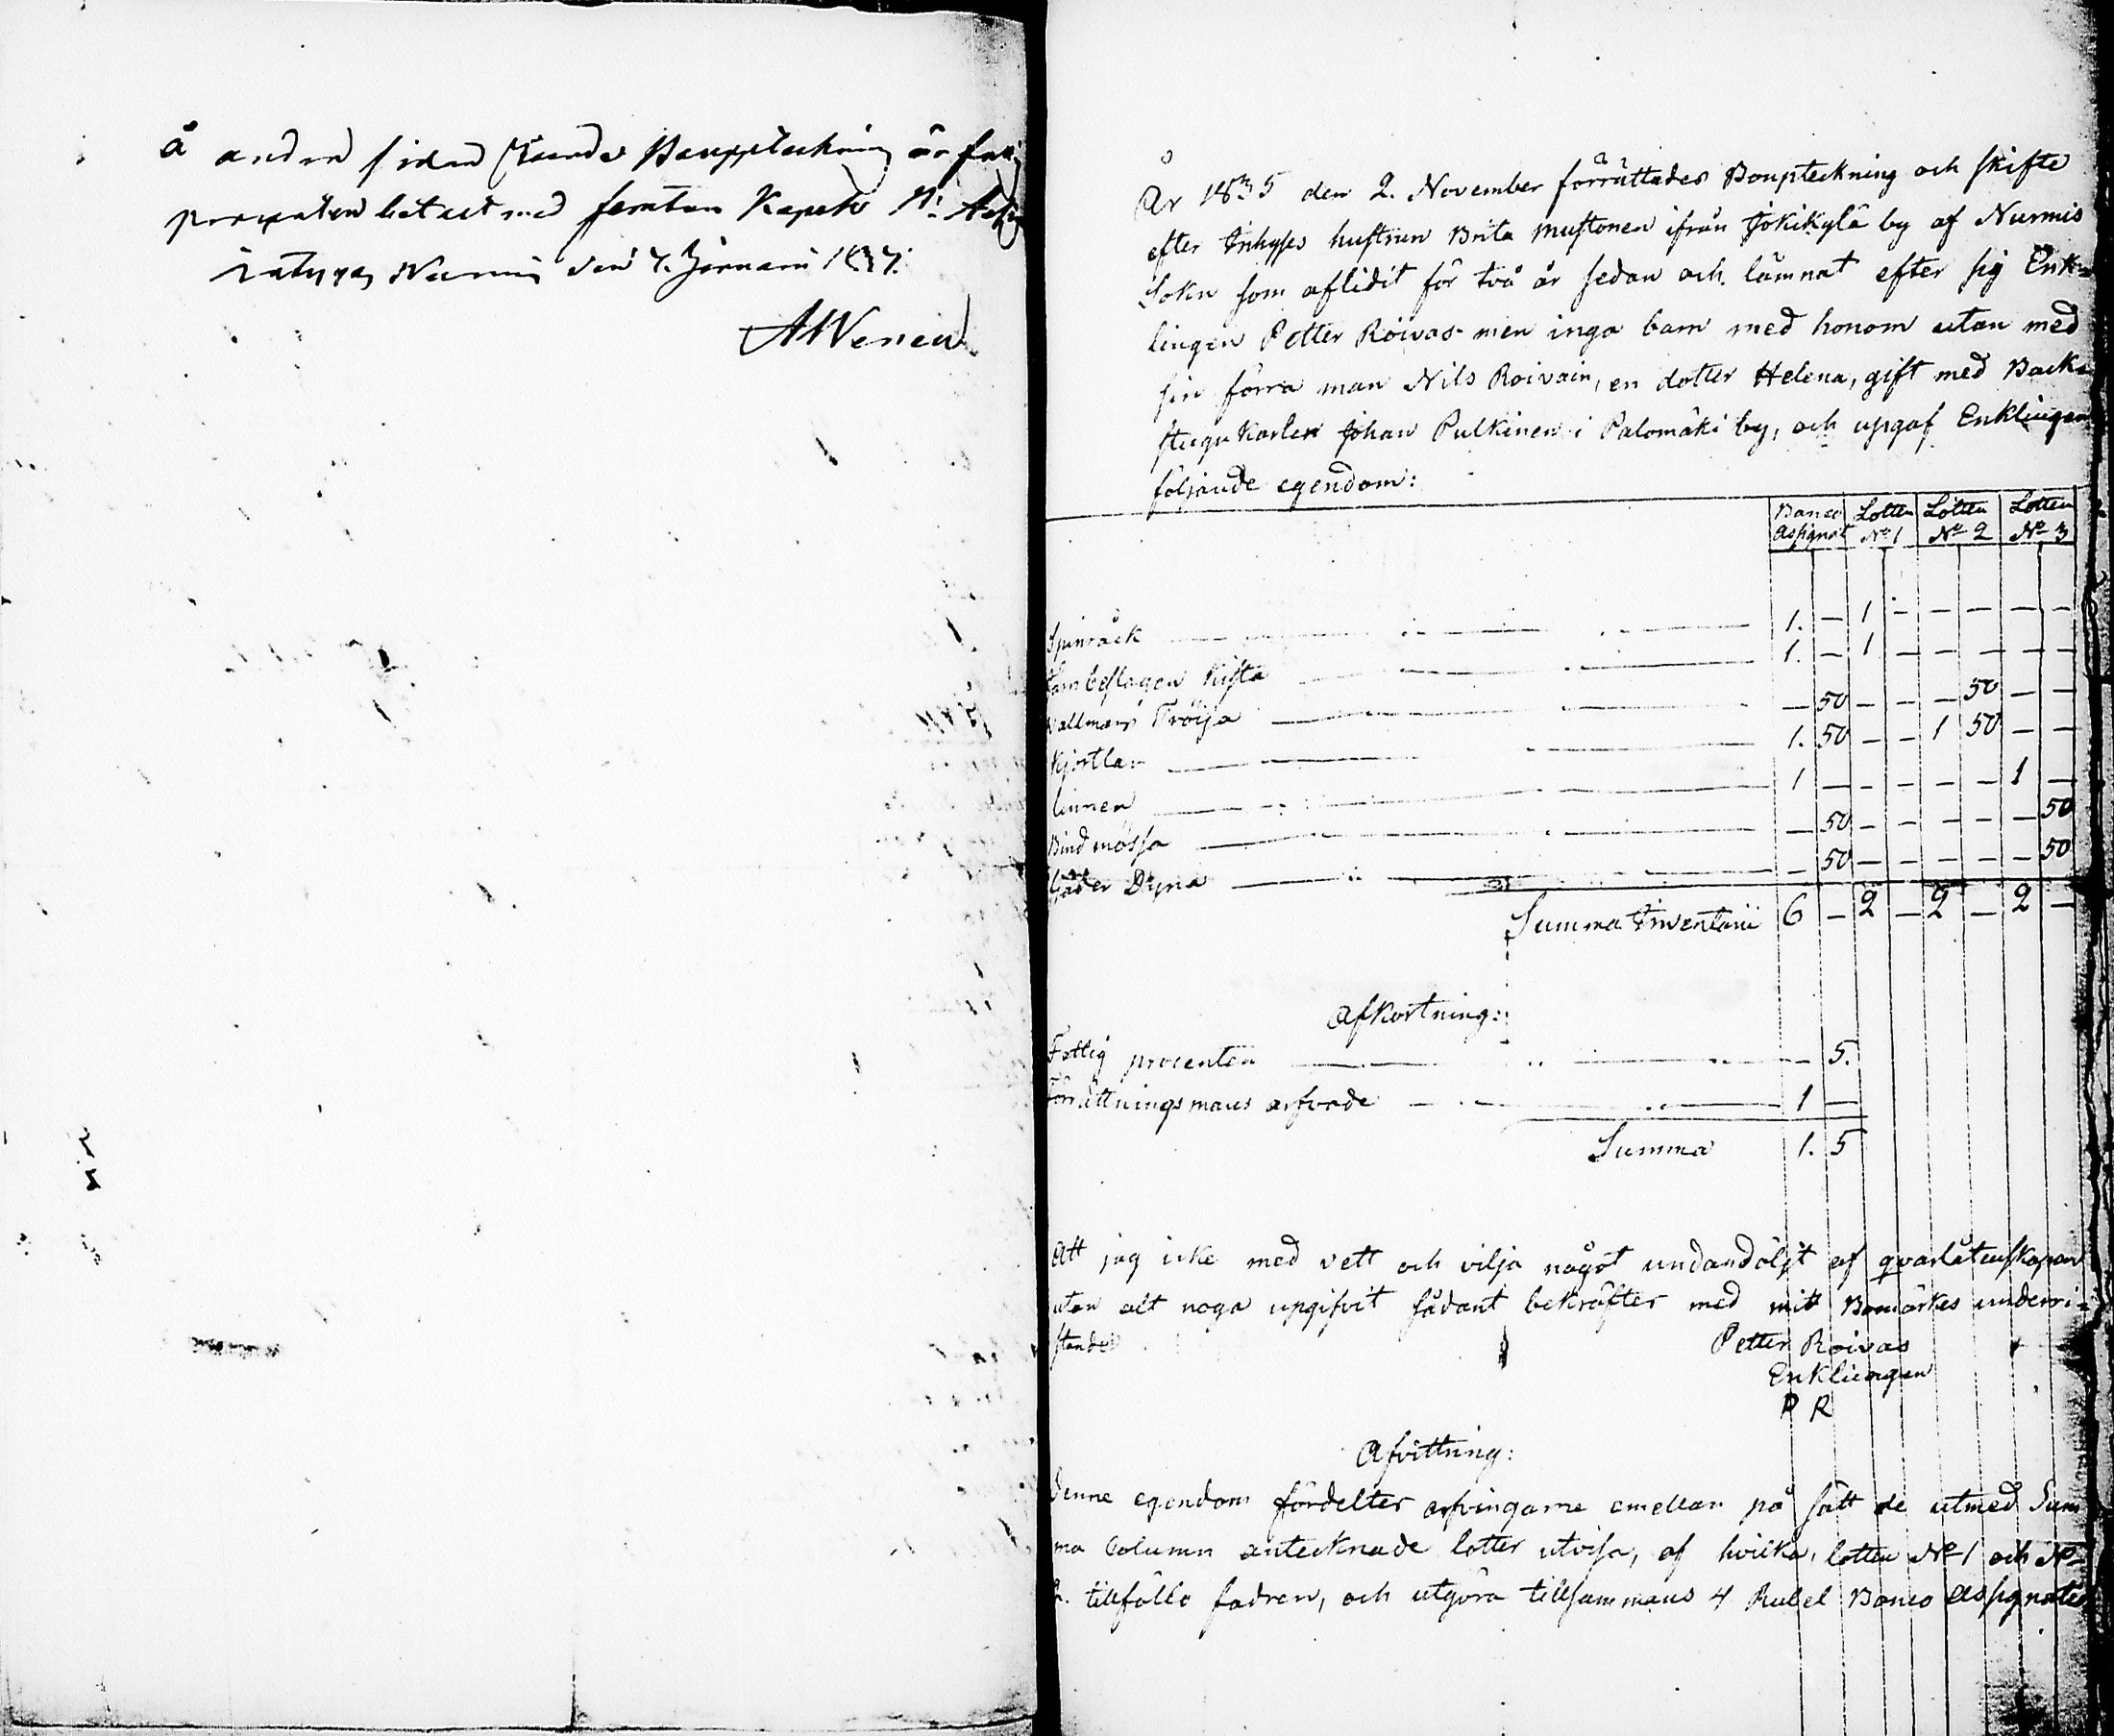 å andra sidan Bouppteckning är fattig
procenten betalt med femton Kopek
intygar Nurmis den 7. Januari 1837.
AWenell
År 1835 den 2. November förrättades Boupteckning och skifte
efter Inhyses hustrun Brita Mustonen ifrån Jokikylä by af Nurmis
Sokn som aflidit för två år sedan och lämnat efter sig Enk-
lingen Petter Roivas men inga barn med honom utan med
sin förra man Nils Roivain, en dotter Helena, gift med Back-
stugu Karlen Johan Pulkinen i Palomäki by, och upgaf Enklingen
följande egendom:
Banco Assignat | Lotten No 1 | Lotten No 2 | Lotten No 3
Spinråck 1. — 1 — — — — —
Jernbeslagen Kista 1. — 1 — — — — —
Vallmans Tröija — 50 — — — 50 — —
Kjortlar 1. 50 — — 1 50 — —
linnen 1 — — — — — 1 —
Bindmössa — 50 — — — — — 50
fjäder Dyna — 50 — — — — — 50
Summa Inventarii 6 — 2 — 2 — 2 —
Afkortning:
Fattig procenten — 5.
Förrättningsmans arfvode 1 —
Summa 1. 5
Att jag icke med vett och vilja något undandöljt af qvarlåtenskapen
utan alt noga upgifvit sådant bekräftes med mitt Bomärkes underri-
stande
Petter Roivas
Enklingen
P R
Afvittring:
Denne egendom fördeltes arfvingarne emellan på sätt de utmed Sum
ma Column antecknade lotter utvisa, af hvilka, lotten No 1 och No
2. tillfälle fadren, och utgöra tillsammans 4 Rubel Banco Assignater